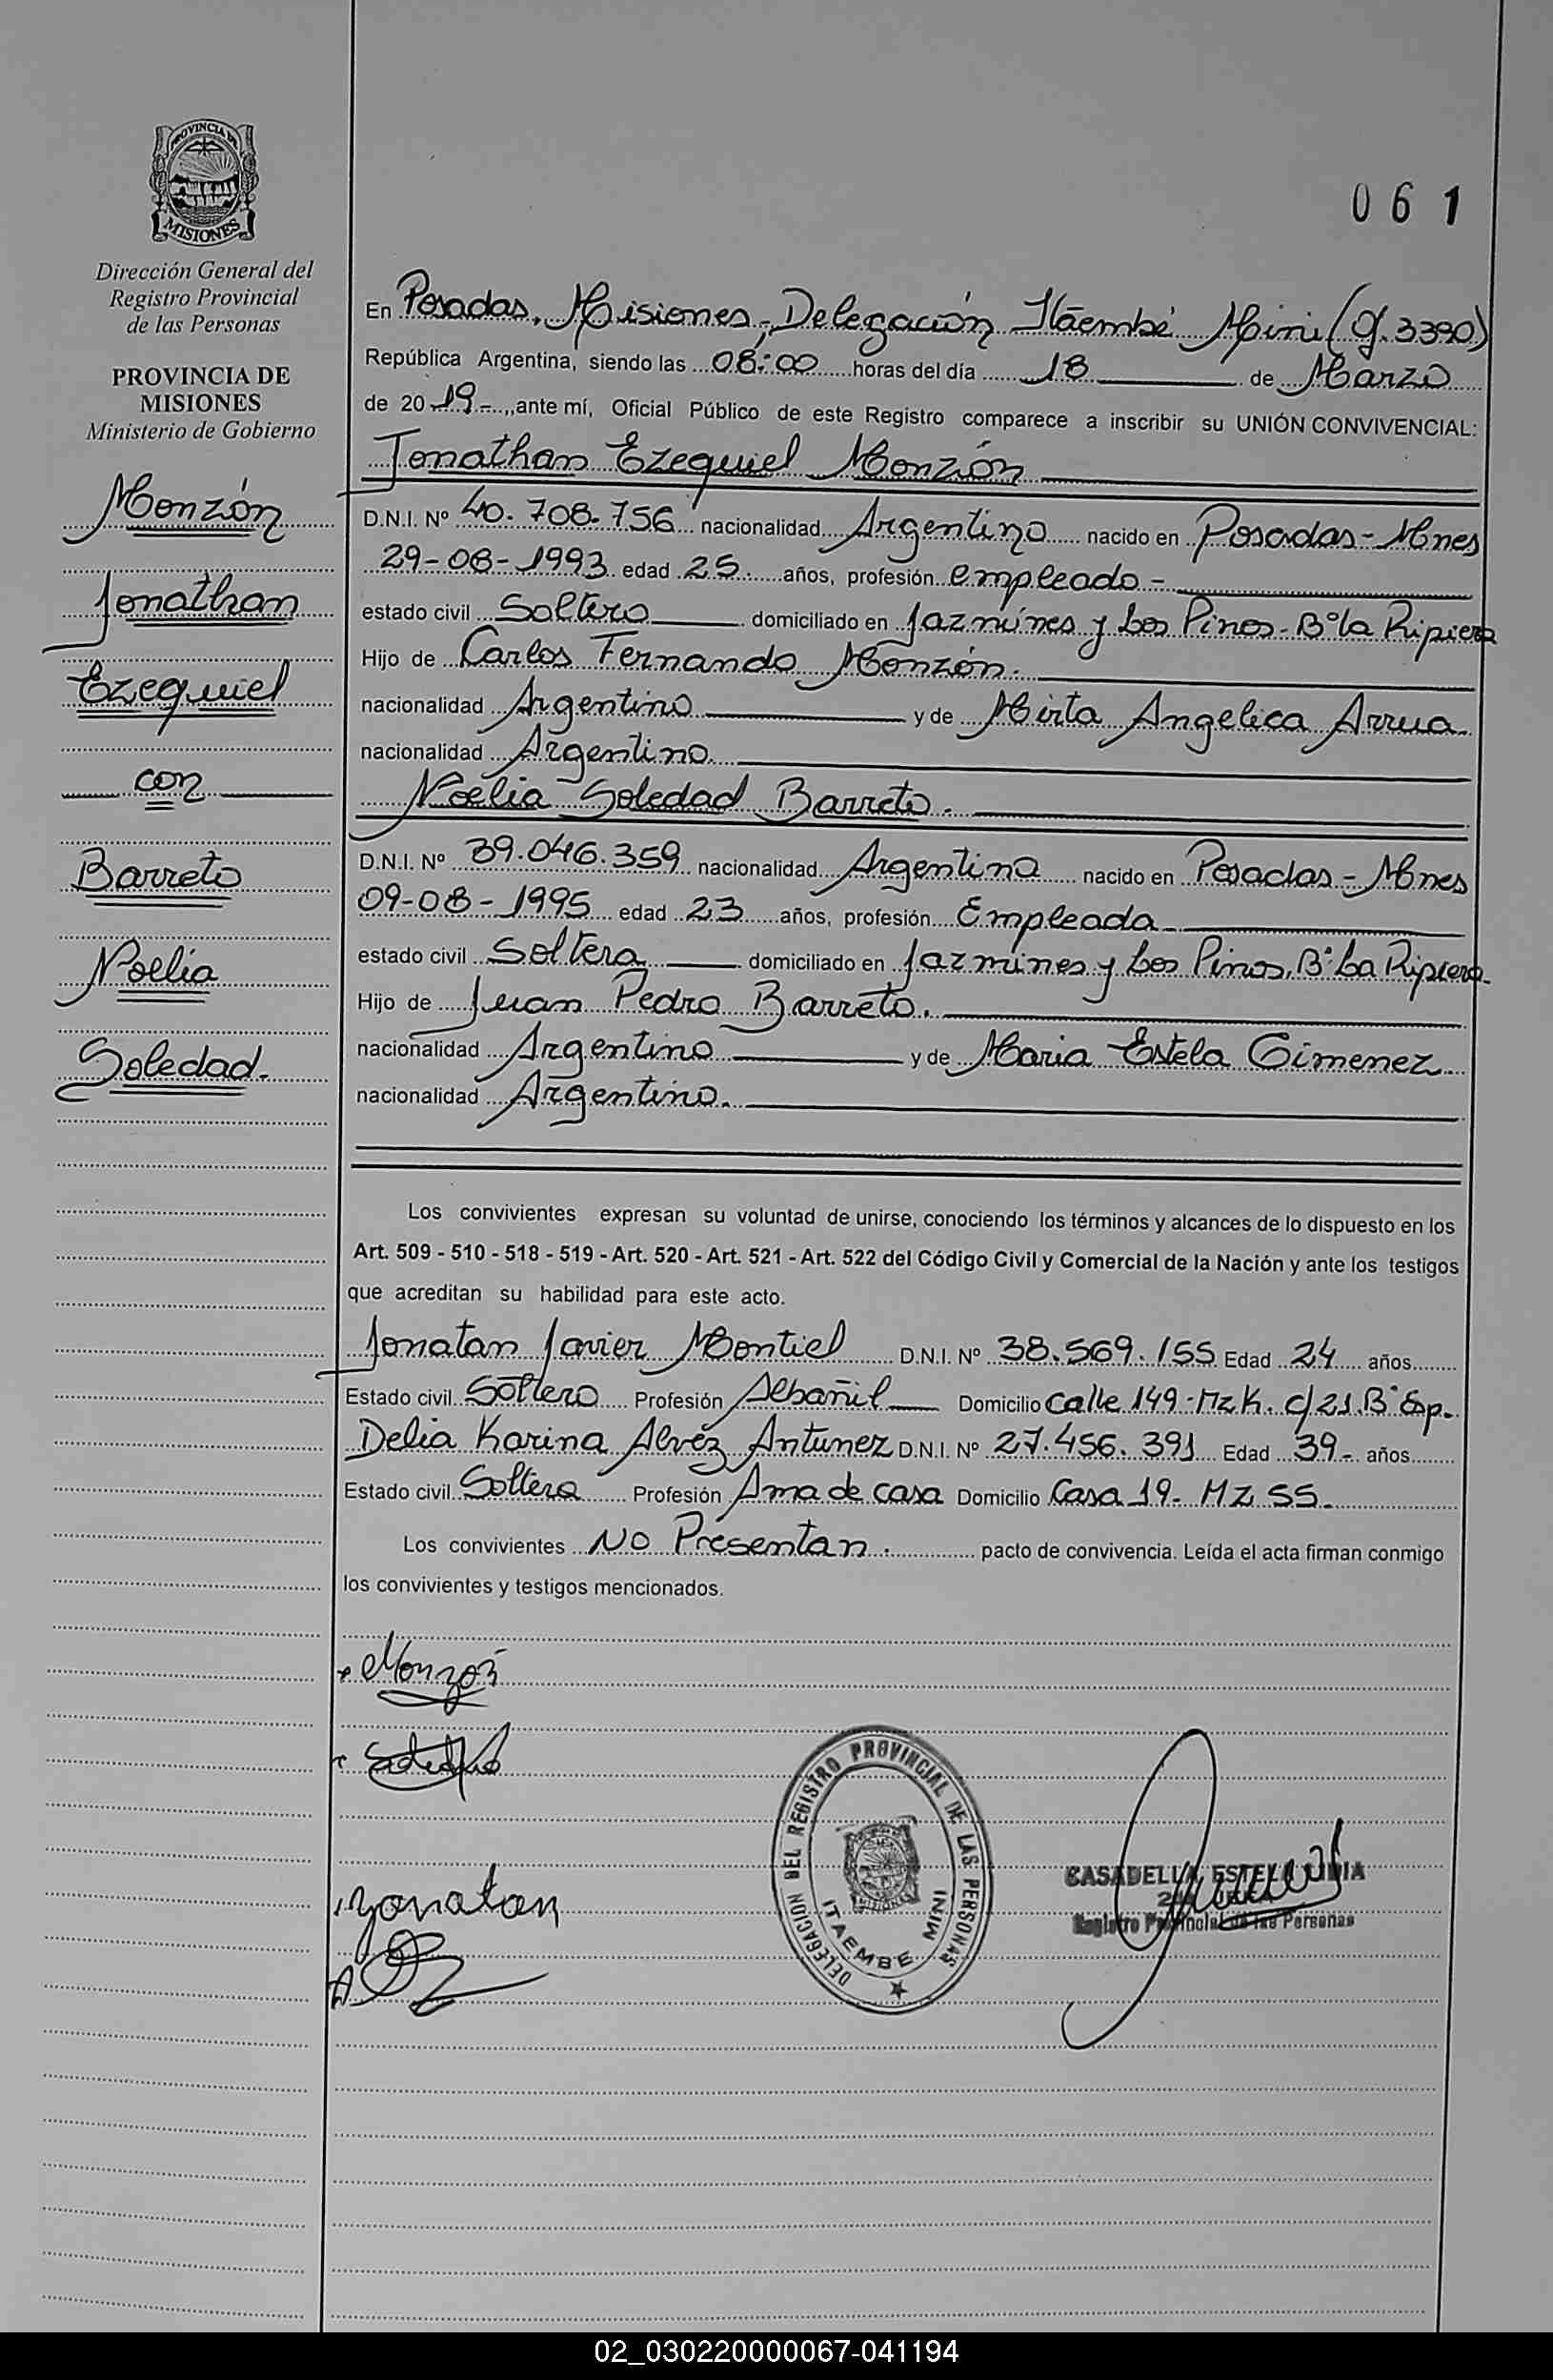 PROVINCIA DE
MISIONES
Dirección General del
Registro Provincial
de las Personas
PROVINCIA DE
MISIONES
Ministerio de Gobierno
Monzón
Jonathan
Ezequiel
con
Barreto
Noelia
Soledad.
061
En Posadas, Misiones, Delegación Itaembé Mini (g. 3390)
República Argentina, siendo las 08:00 horas del día 18 de Marzo
de 20 19.-, ante mí, Oficial Público de este Registro comparece a inscribir su UNIÓN CONVIVENCIAL:
Jonathan Ezequiel Monzón
D.N.I. Nº 40.708.756 nacionalidad Argentino nacido en Posadas-Mnes
29-08-1993 edad 25 años, profesión empleado-
estado civil Soltero domiciliado en Jazmines y Los Pinos-Bº La Ripiera
Hijo de Carlos Fernando Monzón.
nacionalidad Argentino y de Mirta Angelica Arrua
nacionalidad Argentino.
Noelia Soledad Barreto.
D.N.I. Nº 39.046.359 nacionalidad Argentina nacido en Posadas-Mnes
09-08-1995 edad 23 años, profesión Empleada
estado civil Soltera domiciliado en Jazmines y Los Pinos, Bº La Ripiera.
Hijo de Juan Pedro Barreto.
nacionalidad Argentino y de Maria Estela Gimenez
nacionalidad Argentino.
Los convivientes expresan su voluntad de unirse, conociendo los términos y alcances de lo dispuesto en los
Art. 509 - 510 - 518 - 519 - Art. 520 - Art. 521 - Art. 522 del Código Civil y Comercial de la Nación y ante los testigos
que acreditan su habilidad para este acto.
Jonatan Javier Montiel D.N.I. Nº 38.569.155 Edad 24 años
Estado civil Soltero Profesión Albañil Domicilio Calle 149-Mz K. c/21.Bº Esp.
Delia Karina Alvez Antunez D.N.I. Nº 27.456.391 Edad 39- años
Estado civil Soltera Profesión Ama de casa Domicilio Casa 19- MZ SS.
Los convivientes No Presentan. pacto de convivencia. Leída el acta firman conmigo
los convivientes y testigos mencionados.
Monzón
Jonatan
DELEGACION DEL REGISTRO PROVINCIAL DE LAS PERSONAS
ITAEMBE MINI
CASADELLA
Registro Provincial de las Personas
02_030220000067-041194